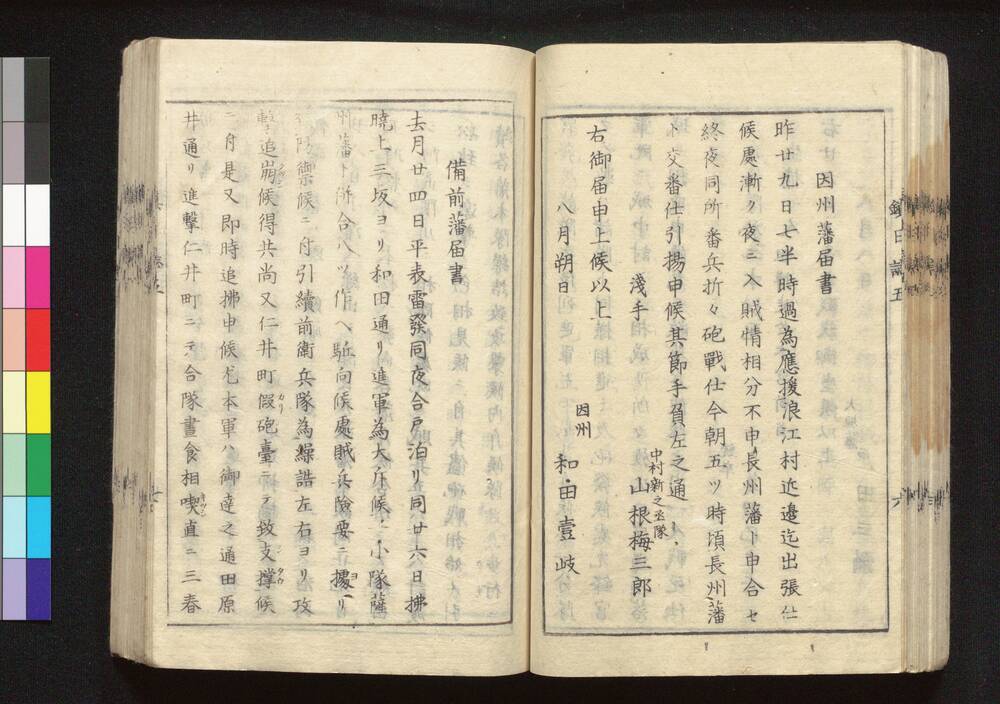 因州藩届書
昨廿九日七半時過為應援浪江村近邊迄出張仕
候處漸ク夜ニ入賊情相分不申長州藩ト申合セ
終夜同所ヘ番兵折々砲戰仕今朝五ツ時頃長州藩
ト交番仕引揚申候其節手負左之通
中村新之丞隊
淺手 山根梅三郎
右御届申上候以上
因州
八月朔日 和田壹岐
備前藩届書
去月廿四日平表雷發同夜合戸泊リ同廿六日拂
曉上三坂ヨリ和田通リ進軍為大斥候一小隊薩
州藩ト所合ハツ作ヘ駈向候處賊兵險要ニ據リ
防禦候ニ付引續前衛兵隊為繰詰左右ヨリ攻
擊追崩候得共尚又仁井町假砲臺ニテ致支撐候
ニ付是又即時追拂申候尤本軍ハ御達之通田原
井通リ進擊仁井町ニテ合隊晝食相喫直ニ三春